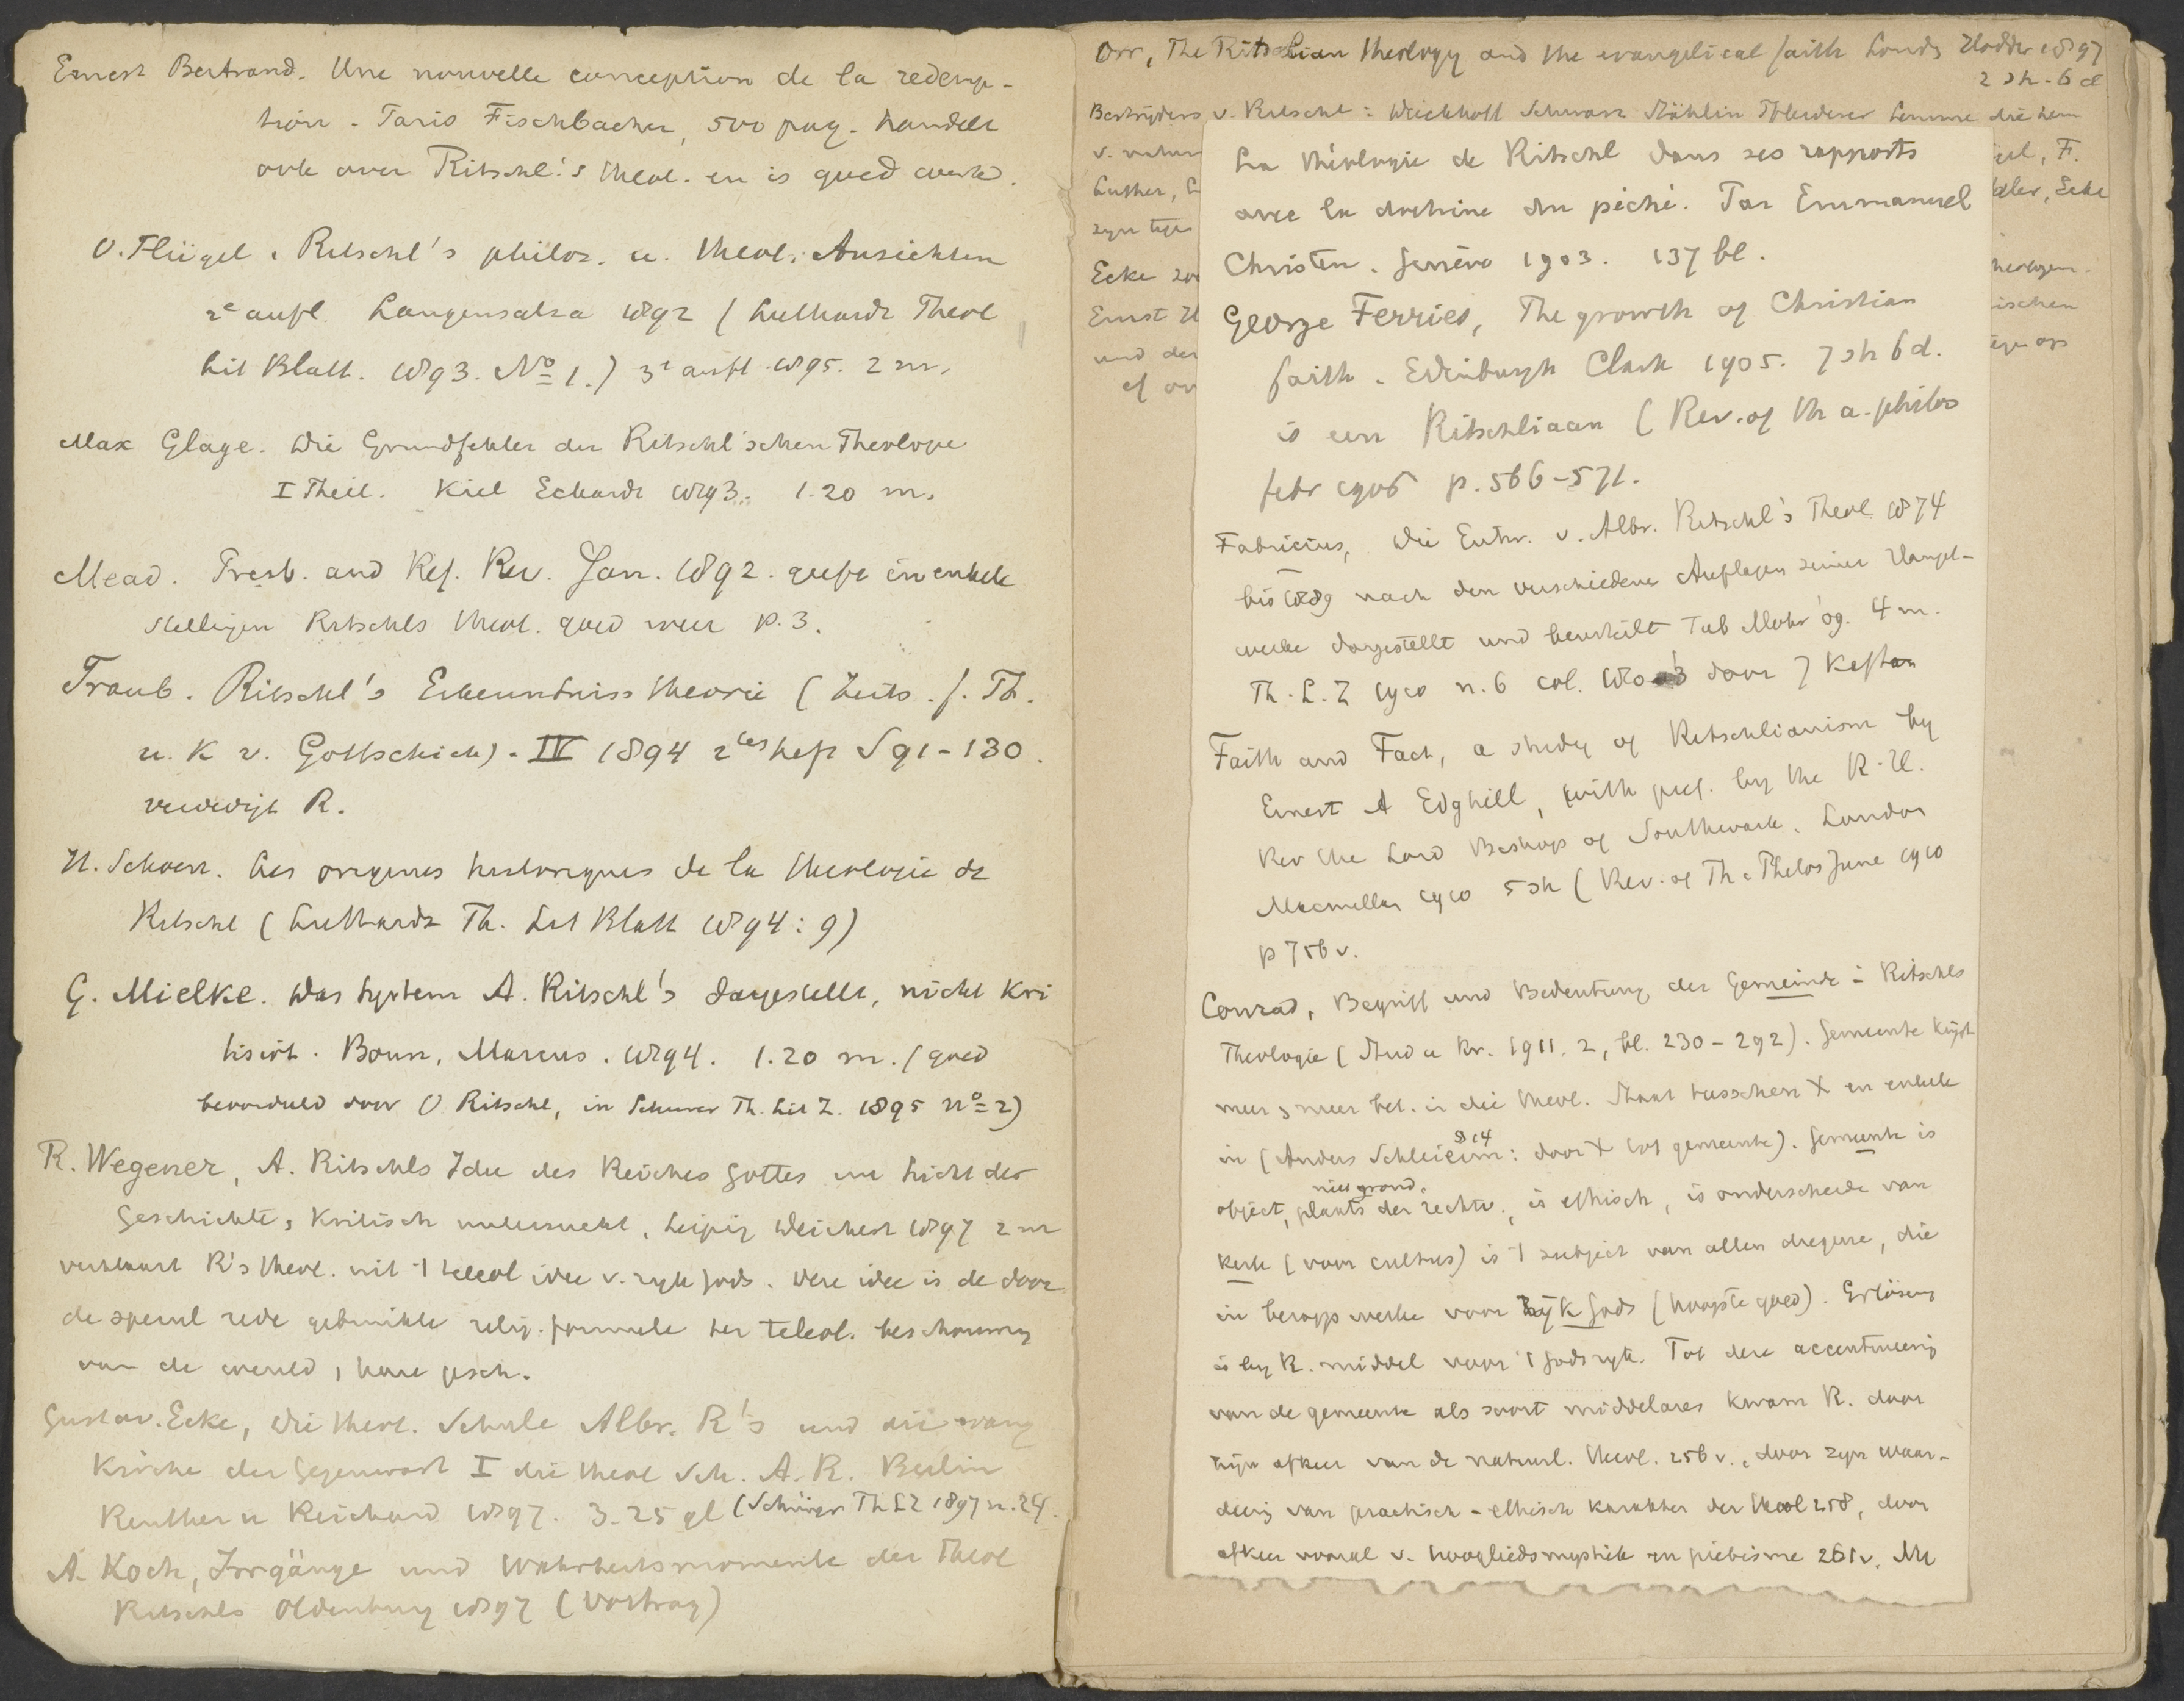 Ernest Bertrand. Une nouvelle conception de la redemp-
tion. Paris Fischbacher, 500 pag. handelt
ook over Ritschl's theol. en is goed werk.
O. Flügel. Ritschl's philos. u. theol. Ansichten
2e aufl. Langensalza 1892 (Luthardt Theol
Lit Blatt. 1893. No 1.) 3e aufl. 1895. 2 m.
Max Glage. Die Grundfehler der Ritschl'schen Theologie
I Theil. Kiel Eckardt 1893. 1.20 m.
Mead. Presb. and Ref. Rev. Jan. 1892. geeft in enkele
stellingen Ritschls theol. goed weer p. 3.
Traub. Ritschl's Erkenntnisstheorie (Zeits. f. Th.
u. K v. Gottschick). IV 1894 2tes heft S 91-130.
verdedigt R.
H. Schoen. Les origines historiques de la theologie de
Ritschl (Luthardt Th. Lit Blatt 1894: 9)
G. Mielke. Das System A. Ritschl's dargestellt, nicht kri
tisirt. Bonn, Marcus. 1894. 1.20 m. (goed
beoordeeld door O Ritschl, in Schurer Th. Lit Z. 1895 No 2)
R. Wegener, A. Ritschls Idee des Reiches Gottes im Licht der
Geschichte, kritisch untersucht, Leipzig Deichert 1897 2 m
verklaart R's theol. uit 't teleol idee v. ryk Gods. Deze idee is de door
de specul rede gebruikte relig. formule der teleol. beschouwing
van de wereld, hare gesch.
Gustav. Ecke, Die theol. Schule Albr. R's und die evang
Kirche der Gegenwart I die theol Sch. A. R. Berlin
Reuther u Reichard 1897. 3.25 gl (Schürer Th LZ 1897 n. 24.
A. Koch, Irrgänge und Wahrheitsmomente der Theol
Ritschls Oldenburg 1897 (Vortrag)
Orr, The Ritschlian theology and the evangelical faith Londn Hodder 1897
2 sh. 6 d
Bestrijders v. Ritschl: Dieckhoff Schwarz Stählin Pfleiderer Lemme die hem
v. natur
Luther, L
zyn tege
Ecke zoo
Ernst H
und der
cf ov
F.
Ecke
ischen
La théologie de Ritschl dans ses rapports
avec la doctrine du péché. Par Emmanuel
Christen. Genève 1903. 137 bl.
George Ferries, The growth of Christian
faith. Edinburgh Clark 1905. 7 sh 6 d.
is een Ritschliaan (Rev. of th a. philos
febr 1906 p. 566-571.
Fabricius, Die Entw. v. Albr. Ritschl's Theol. 1874
bis 1889 nach den verschiedenen Auflagen seiner Haupt-
werke dargestellt und beurteilt Tüb Mohr 09. 4 m.
Th. L. Z 1910 n. 6 col. door J Kaftan
Faith and Fact, a study of Ritschlianism by
Ernest A Edghill, with pref. by the R. H.
Rev the Lord Bishop of Southwark. London
Macmillan 1910 5 sh (Rev. of Th. a Philos June 1910
p 756 v.
Conrad, Begriff und Bedeutung der Gemeinde in Ritschls
Theologie (Stud u Kr. 1911. 2, bl. 230-292). Gemeente krijgt
meer en meer bet. in die theol. Staat tusschen X en enkele
in (Anders Schleierm: door X tot gemeente). Gemeente is
814
niet grond.
object, plaats der rechtv., is ethisch, is onderscheide van
kerk (voor cultus) is 't subject van allen diegene, die
in beroep werke voor Rijk Gods (hoogste goed). Erlösung
is by R. middel voor 't Godsryk. Tot deze accentueering
van de gemeente als soort middelares kwam R. door
zijn afkeer van de natuurl. theol. 256 v., door zyn waar-
deering van practisch-ethisch karakter der theol 258, door
afkeer vooral v. hoogliedsmystiek en pietisme 261 v.